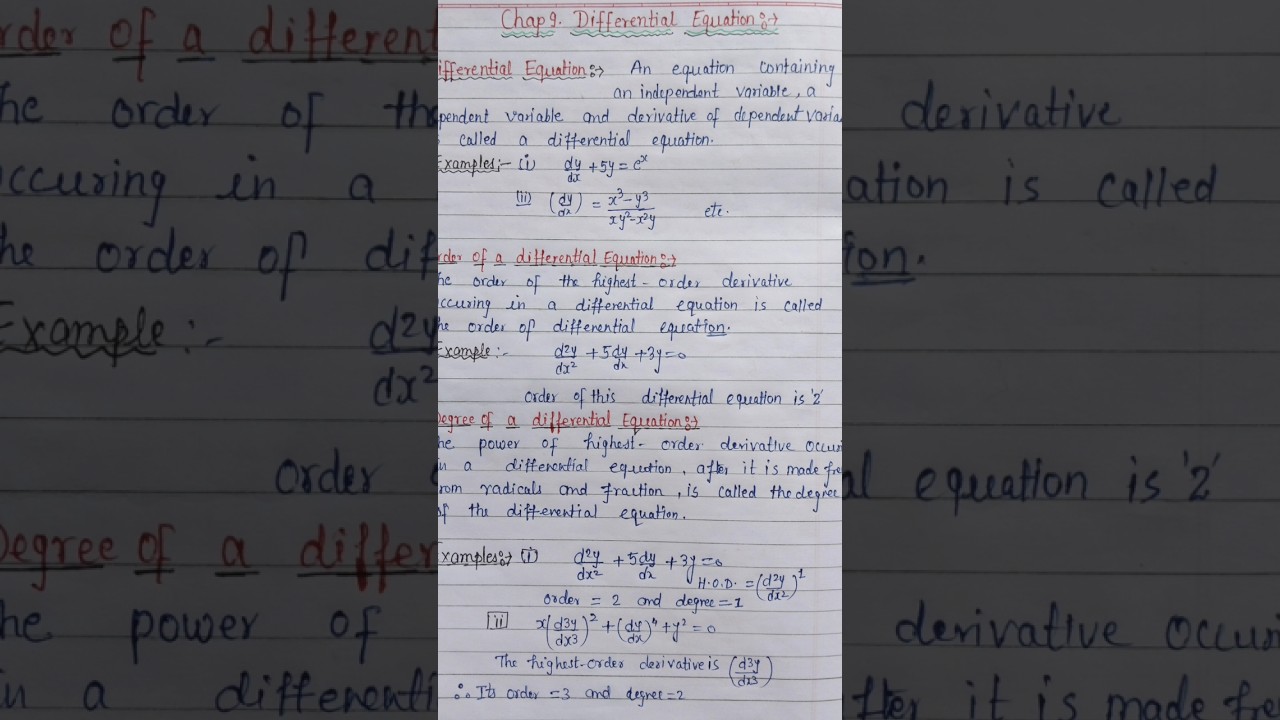 Chap 9. Differential Equation :→
ifferential Equation :→ An equation containing
an independent variable, a
pendent variable and derivative of dependent varia
called a differential equation.
Examples :- (i) dy/dx + 5y = e^x
(ii) (dy/dx) = x³-y³/xy²-x²y etc.
rder of a differential Equation :→
he order of the highest-order derivative
ccuring in a differential equation is called
he order of differential equation.
Example :- d2y/dx² + 5dy/dx + 3y = 0
order of this differential equation is '2'
Degree of a differential Equation :→
he power of highest-order derivative occuri
in a differential equation, after it is made fre
rom radicals and fraction, is called the degree
of the differential equation.
Examples :→ (i) d2y/dx² + 5dy/dx + 3y = 0
H.O.D. = (d2y/dx²)¹
order = 2 and degree = 1
ii x(d3y/dx3)² + (dy/dx)⁴ + y² = 0
The highest-order derivative is (d3y/dx3)
∴ Its order = 3 and degree = 2